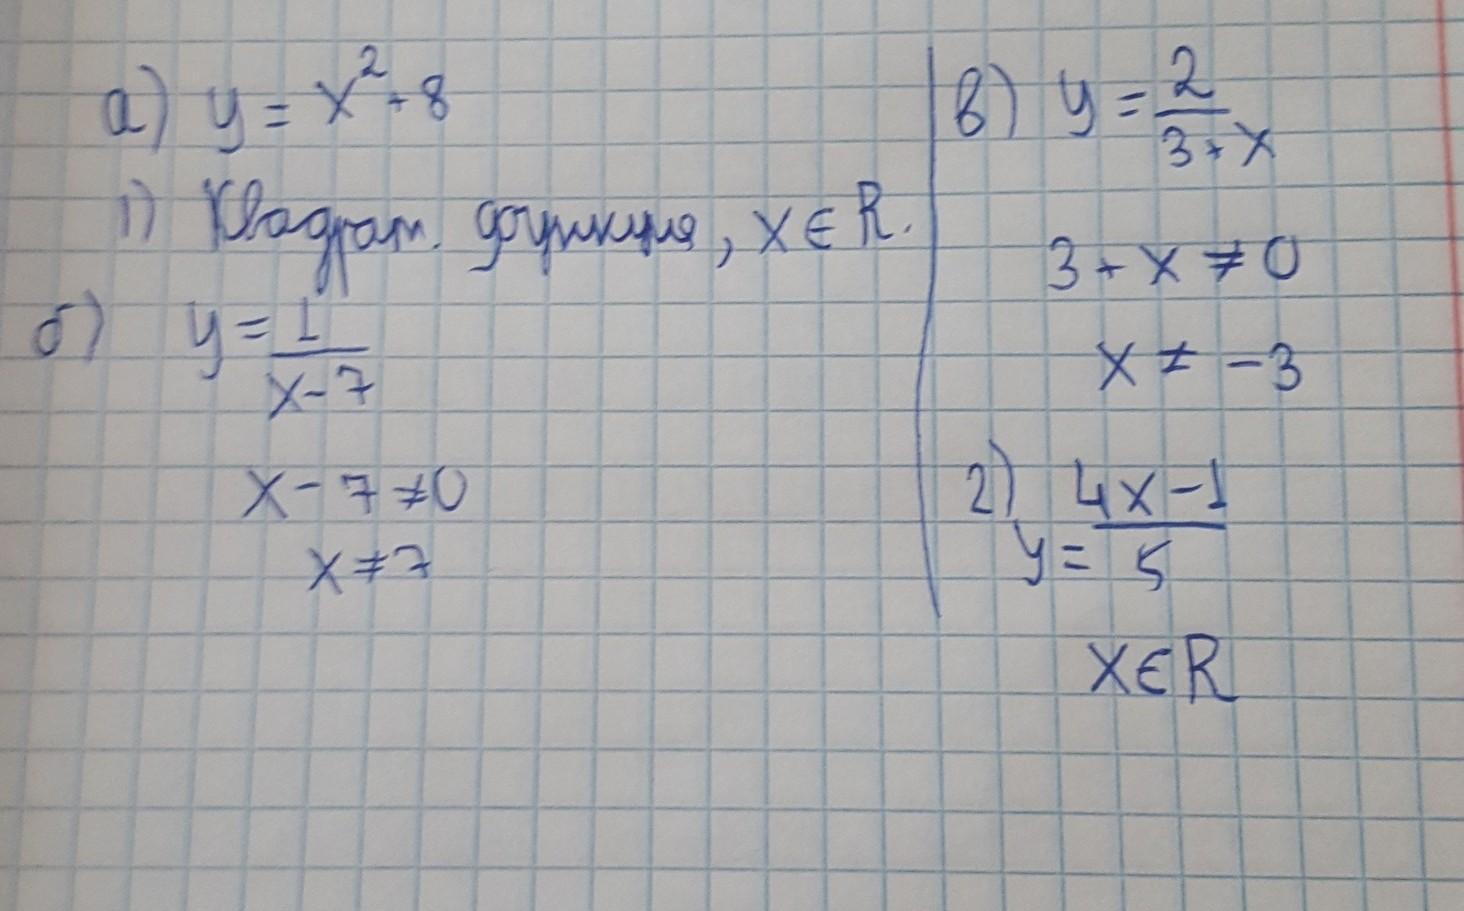 а) y = x² + 8
1) Квадрат. функция, x ∈ R.
б) y = 1/(x - 7)
x - 7 ≠ 0
x ≠ 7
в) y = 2/(3 + x)
3 + x ≠ 0
x ≠ -3
г) y = (4x - 1)/5
x ∈ R